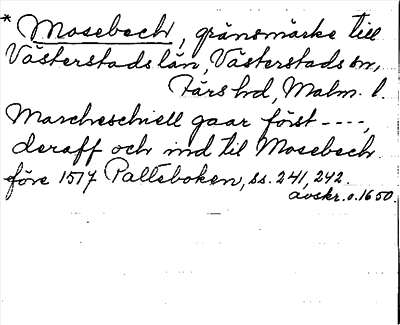 * Mosebech, gränsmärke till
Västerstads län, Västerstads sn,
Färs hd, Malm. l.
Marcheschiell gaar först ----,
deraff och ind til Mosebech.
före 1517 Palteboken, ss. 241, 242.
avskr. o. 1650.